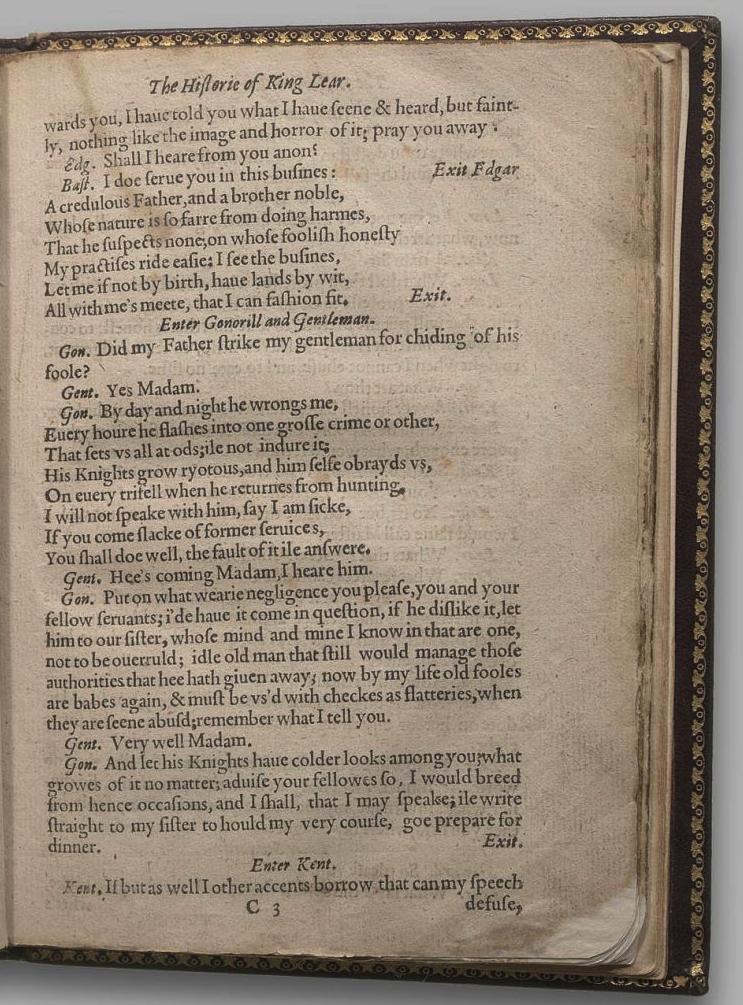 The Hiſtorie of King Lear.
wards you, I haue told you what I haue ſeene & heard, but faint-
ly, nothing like the image and horror of it; pray you away.
Edg. Shall I heare from you anon?
Baſt. I doe ſerue you in this buſines: Exit Edgar
A credulous Father, and a brother noble,
Whoſe nature is ſo farre from doing harmes,
That he ſuſpects none, on whoſe fooliſh honeſty
My practiſes ride eaſie: I ſee the buſines,
Let me if not by birth, haue lands by wit,
All with me's meete, that I can faſhion fit. Exit.
Enter Gonorill and Gentleman.
Gon. Did my Father ſtrike my gentleman for chiding of his
foole?
Gent. Yes Madam.
Gon. By day and night he wrongs me,
Euery houre he flaſhes into one groſſe crime or other,
That ſets vs all at ods; ile not indure it;
His Knights grow ryotous, and him ſelfe obrayds vs,
On euery trifell when he returnes from hunting,
I will not ſpeake with him, ſay I am ſicke,
If you come ſlacke of former ſeruices,
You ſhall doe well, the fault of it ile anſwere.
Gent. Hee's coming Madam, I heare him.
Gon. Put on what wearie negligence you pleaſe, you and your
fellow ſeruants; i'de haue it come in queſtion, if he diſlike it, let
him to our ſiſter, whoſe mind and mine I know in that are one,
not to be ouerruld; idle old man that ſtill would manage thoſe
authorities that hee hath giuen away; now by my life old fooles
are babes again, & muſt be vs'd with checkes as flatteries, when
they are ſeene abuſd; remember what I tell you.
Gent. Very well Madam.
Gon. And let his Knights haue colder looks among you; what
growes of it no matter; aduiſe your fellowes ſo, I would breed
from hence occaſions, and I ſhall, that I may ſpeake; ile write
ſtraight to my ſiſter to hould my very courſe, goe prepare for
dinner. Exit.
Enter Kent.
Kent. If but as well I other accents borrow that can my ſpeech
C 3 defuſe,